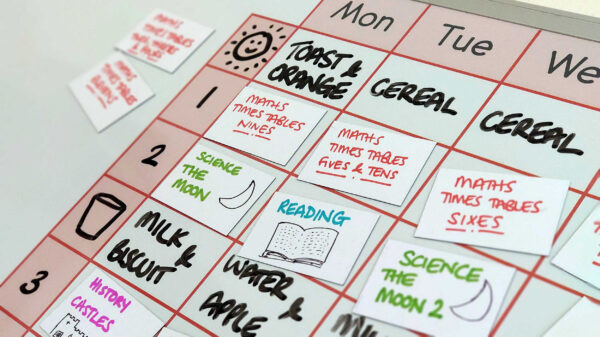 Mon
Tue
We
MATHS
TIMES TABLES
TOAST &
ORANGE
CEREAL
CEREAL
1
MATHS
TIMES TABLES
NINES
MATHS
TIMES TABLES
FIVES & TENS
MATHS
TIMES TABLES
SIXES
2
SCIENCE
THE
MOON
READING
SCIENCE
THE
MOON 2
MILK &
BISCUIT
WATER &
APPLE
3
HISTORY
CASTLES